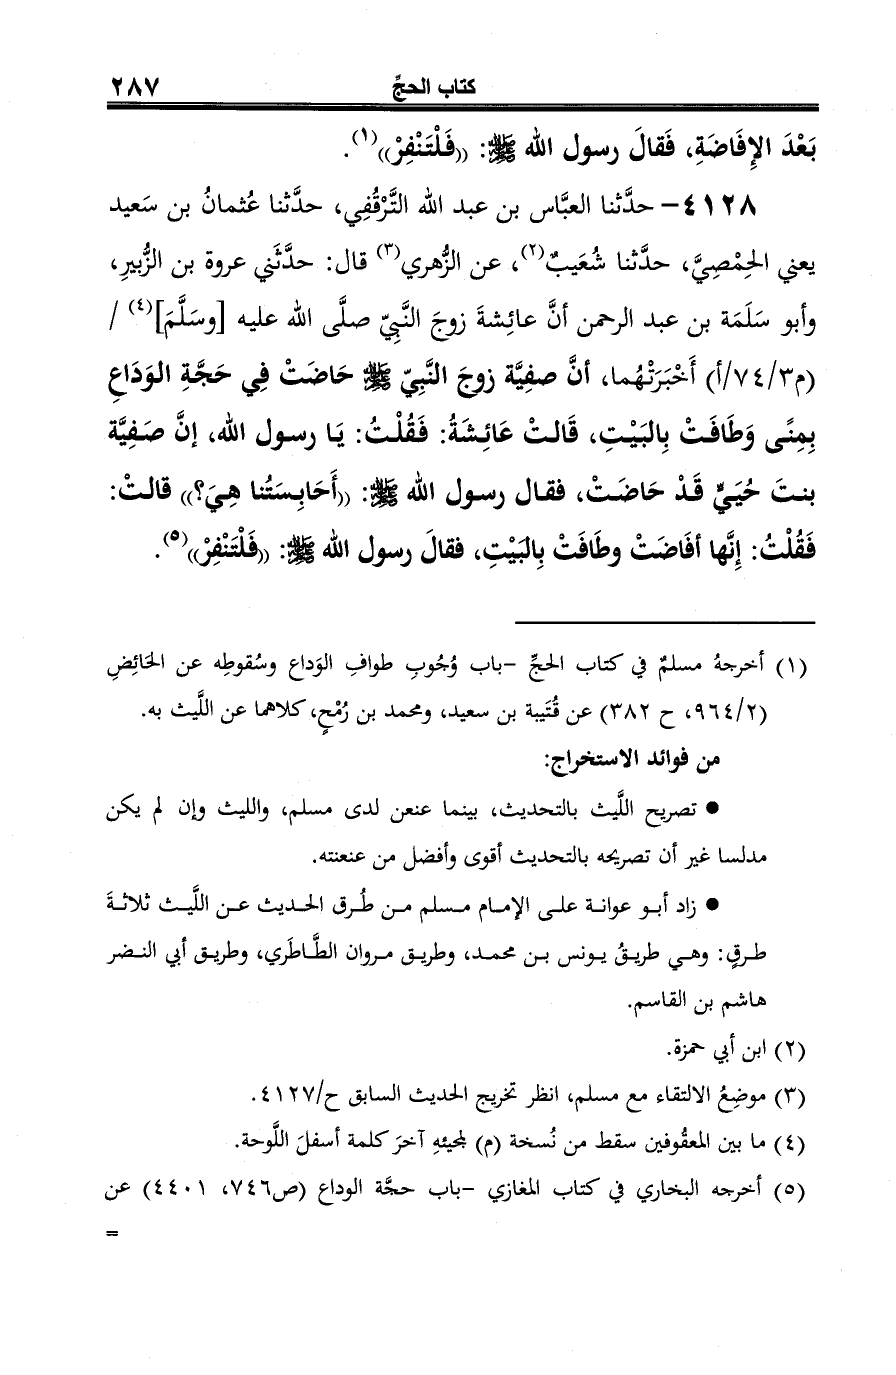 كتاب الحجّ ٢٨٧
بَعْدَ الإِفَاضَةِ، فَقالَ رسول الله ﷺ: ((فَلْتَنْفِرْ))(١).
٤١٢٨- حدَّثنا العبَّاس بن عبد الله التَّرْقُفِي، حدَّثنا عُثمانُ بن سَعيد
يعني الحِمْصِيَّ، حدَّثنا شُعَيبٌ(٢)، عن الزُّهري(٣) قال: حدَّثَني عروة بن الزُّبيرِ،
وأبو سَلَمَة بن عبد الرحمن أنَّ عائِشةَ زوجَ النَّبيّ صلَّى الله عليه [وسَلَّمَ](٤) /
(م٧٤/٣/أ) أَخْبَرَتْهُما، أنَّ صفيَّة زوجَ النَّبيّ ﷺ حَاضَتْ فِي حَجَّةِ الوَدَاعِ
بِمِنًى وَطَافَتْ بِالبَيْتِ، قَالتْ عَائِشَةُ: فَقُلْتُ: يَا رسول الله، إنَّ صَفِيَّة
بنتَ حُيَيٍّ قَدْ حَاضَتْ، فقال رسول الله ﷺ: ((أَحَابِسَتُنا هِيَ؟)) قالتْ:
فَقُلْتُ: إِنَّها أفَاضَتْ وطَافَتْ بِالبَيْتِ، فقالَ رسول الله ﷺ: ((فَلْتَنْفِرْ))(٥).
(١) أخرجهُ مسلمٌ في كتاب الحجِّ -باب وُجُوبِ طوافِ الوَداع وسُقوطِه عن الحَائِضِ
(٩٦٤/٢، ح ٣٨٢) عن قُتَيبة بن سعيد، ومحمد بن رُمْحٍ، كلاهما عن اللَّيث به.
من فوائد الاستخراج:
● تصريح اللَّيث بالتحديث، بينما عنعن لدى مسلم، والليث وإن لم يكن
مدلسا غير أن تصريحه بالتحديث أقوى وأفضل من عنعنته.
● زاد أبو عوانة على الإمام مسلم من طُرق الحديث عن اللَّيث ثلاثةَ
طرقٍ: وهي طريقُ يونس بن محمد، وطريق مروان الطَّاطَري، وطريق أبي النضر
هاشم بن القاسم.
(٢) ابن أبي حمزة.
(٣) موضِعُ الالتقاء مع مسلم، انظر تخريج الحديث السابق ح/٤١٢٧.
(٤) ما بين المعقُوفين سقط من نُسخة (م) لمجيئهِ آخرَ كلمة أسفلَ اللَّوحة.
(٥) أخرجه البخاري في كتاب المغازي -باب حجَّة الوداع (ص٧٤٦، ٤٤٠١) عن
=